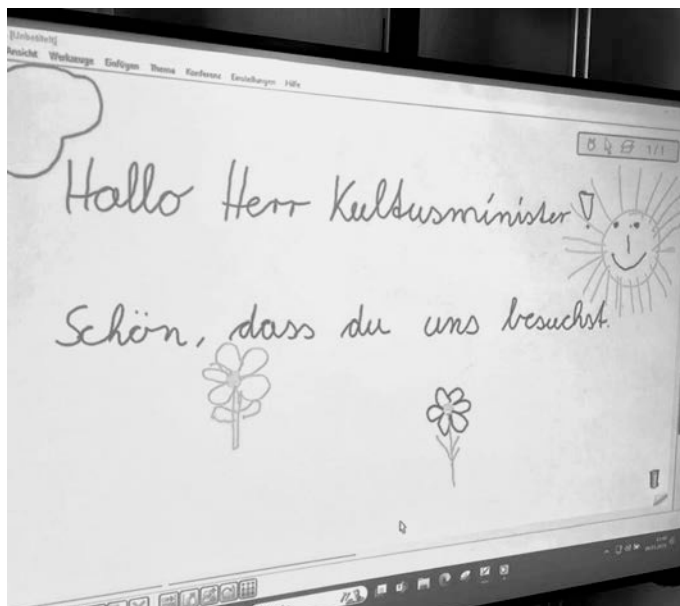 [Unbetitelt]
Ansicht Werkzeuge Einfügen Thema Konferenz Einstellungen Hilfe
1/1
Hallo Herr Kultusminister!
Schön, dass du uns besuchst.